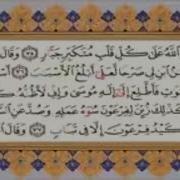 ٱللَّهُ عَلَىٰ كُلِّ قَلْبِ مُتَكَبِّرٍ جَبَّارٍ ٣٥ وَقَالَ
ٱبْنِ لِى صَرْحًا لَّعَلِّىٓ أَبْلُغُ ٱلْأَسْبَٰبَ
فَأَطَّلِعَ إِلَىٰٓ إِلَٰهِ مُوسَىٰ وَإِنِّى لَأَظُنُّهُۥ
وَكَذَٰلِكَ زُيِّنَ لِفِرْعَوْنَ سُوٓءُ عَمَلِهِۦ وَصُدَّ عَنِ
كَيْدُ فِرْعَوْنَ إِلَّا فِى تَبَابٍ ٣٧ وَقَالَ